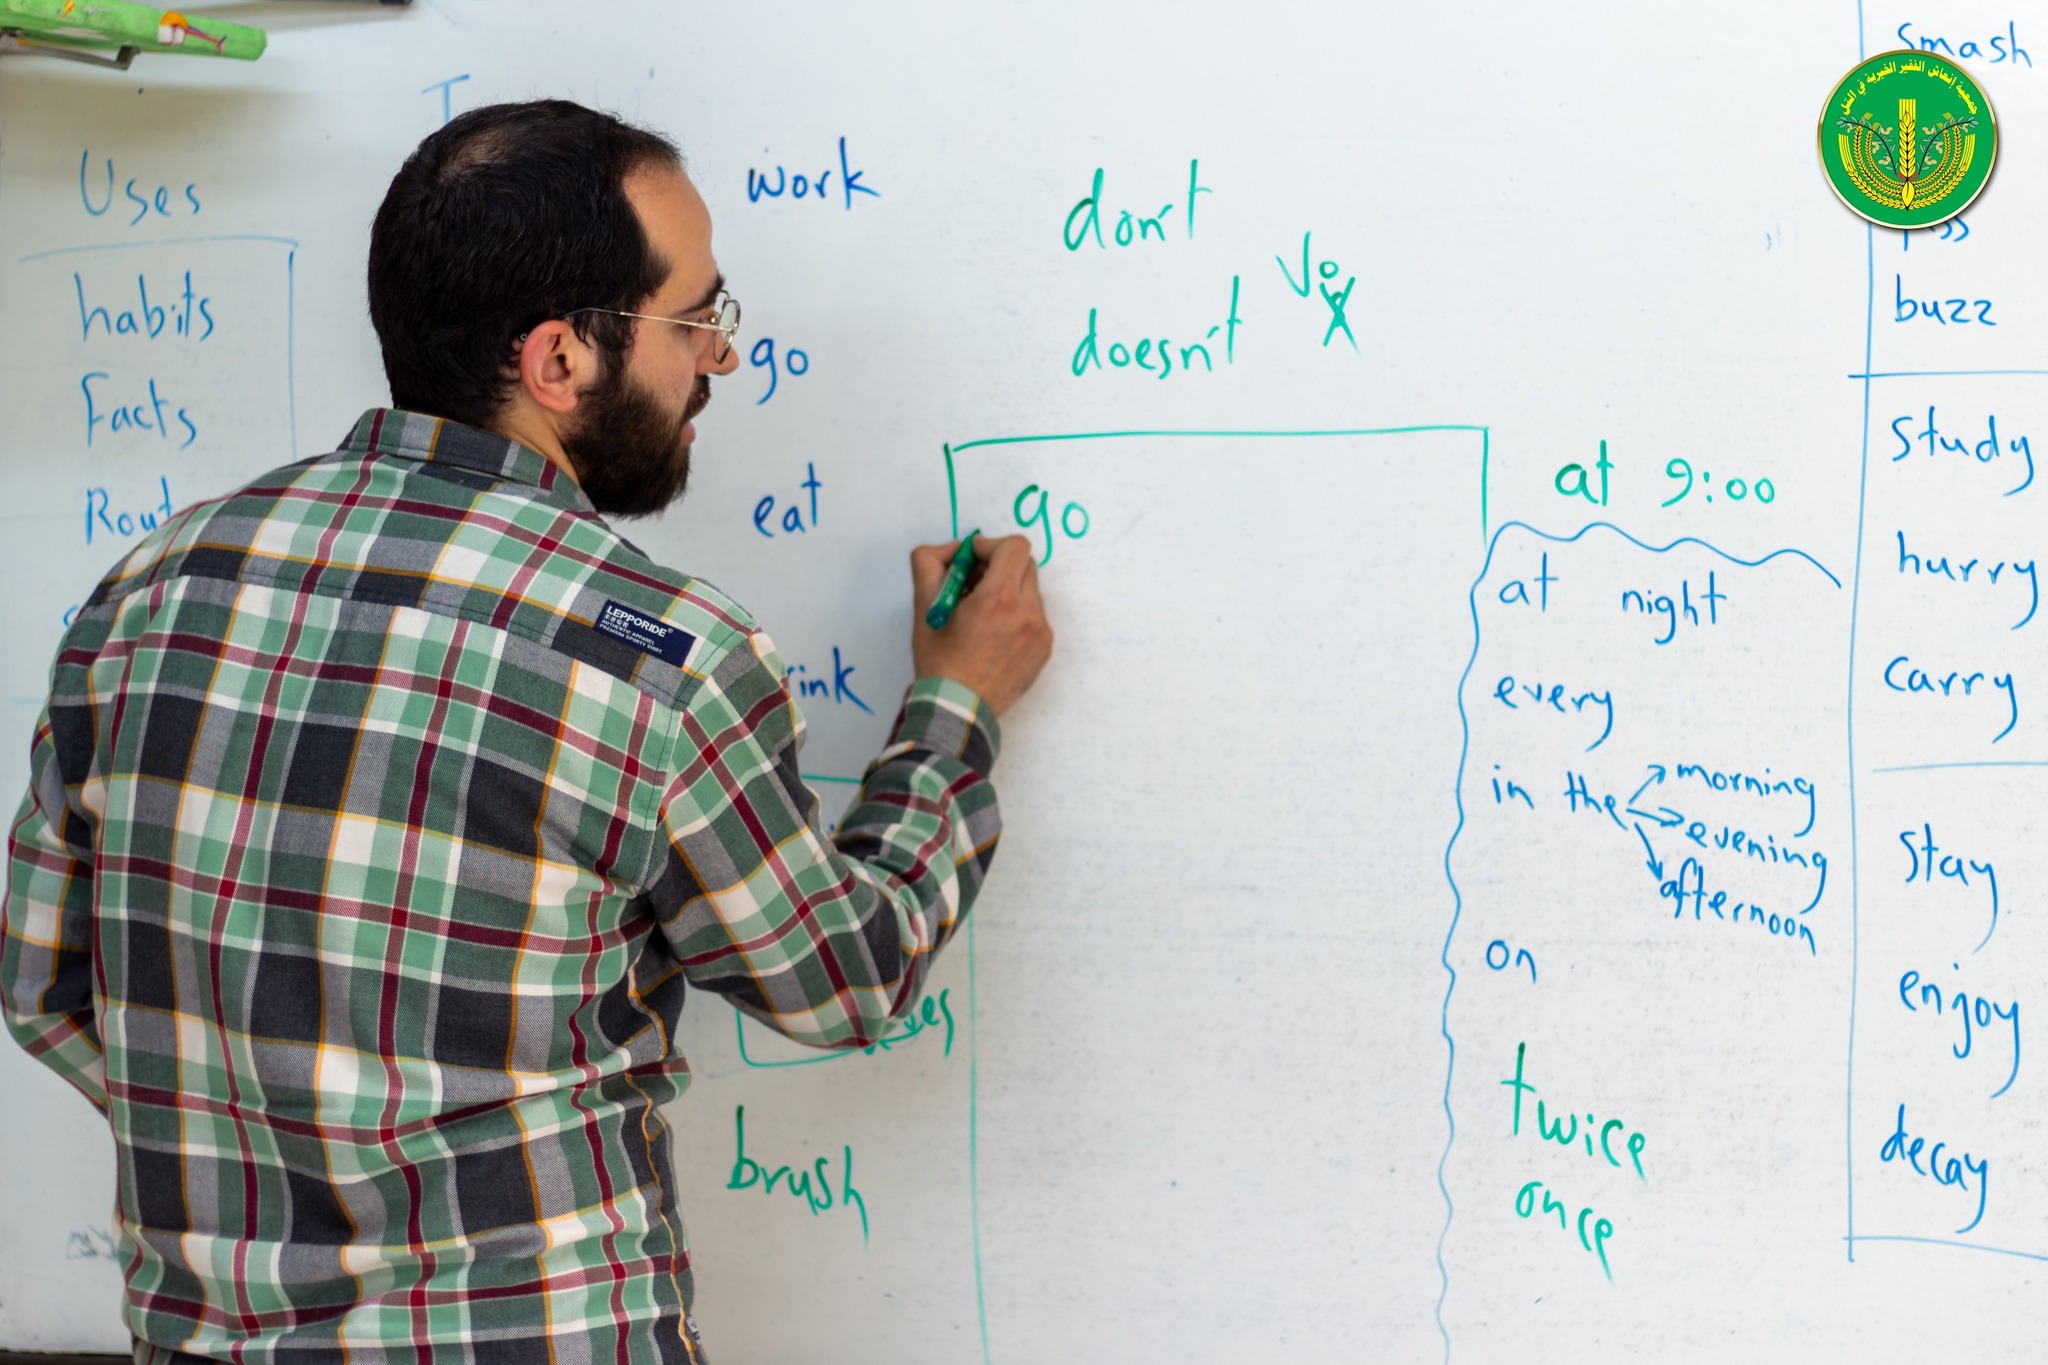 Uses
habits
Facts
work
go
eat
don't
doesn't
Vo
go
es
brush
at 9:00
at night
every
in the
morning
evening
afternoon
on
twice
once
smash
buzz
study
hurry
carry
stay
enjoy
decay
LEPPORIDE
AUTHENTIC APPAREL
PREMIUM SPORTY SHIRT.
جمعية إنعاش الفقير الخيرية في التل